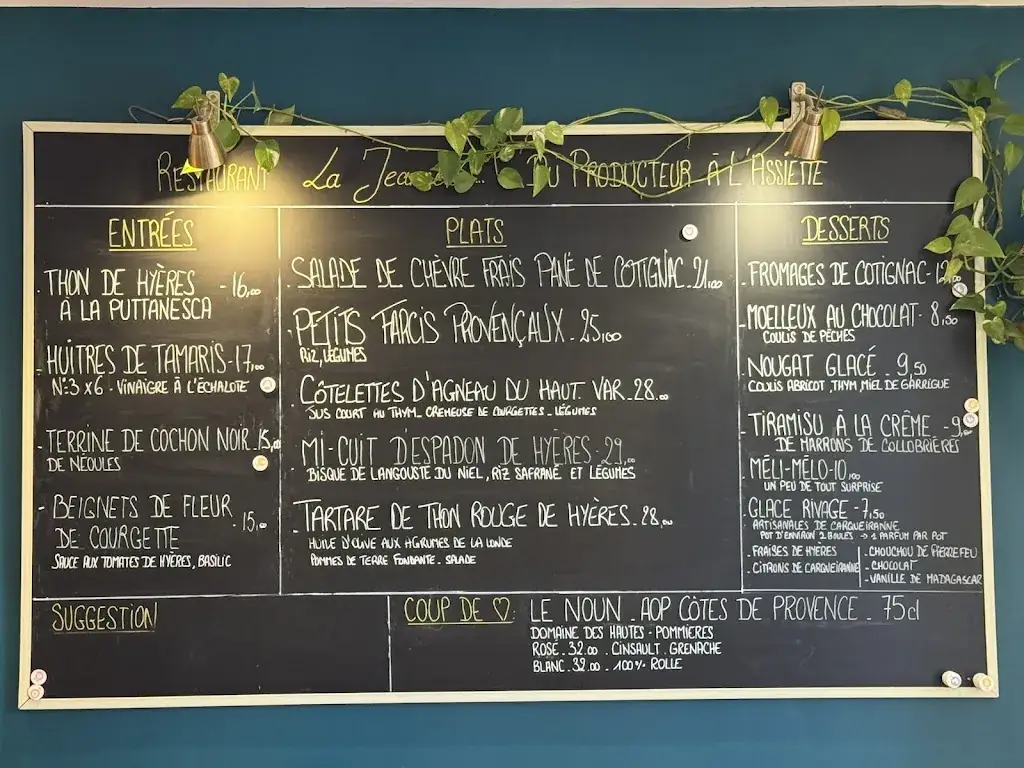 RESTAURANT La DU PRODUCTEUR À L'ASSIETTE
ENTRÉES
THON DE HYÈRES - 16,00
À LA PUTTANESCA
HUITRES DE TAMARIS - 17,00
N°3 x6 - VINAIGRE À L'ÉCHALOTE
- TERRINE DE COCHON NOIR 15,00
DE NÉOULES
- BEIGNETS DE FLEUR
DE COURGETTE - 15,00
SAUCE AUX TOMATES DE HYÈRES, BASILIC
PLATS
SALADE DE CHÈVRE FRAIS PANÉ DE COTIGNAC . 21,00
. PETITS FARCIS PROVENÇAUX . 25,00
RIZ, LÉGUMES
CÔTELETTES D'AGNEAU DU HAUT VAR . 28.00
JUS COURT AU THYM . CREMEUSE DE COURGETTES . LÉGUMES
- MI-CUIT D'ESPADON DE HYÈRES - 29,00
BISQUE DE LANGOUSTE DU NIEL, RIZ SAFRANÉ ET LÉGUMES
- TARTARE DE THON ROUGE DE HYÈRES . 28,00
HUILE D'OLIVE AUX AGRUMES DE LA LONDE
POMMES DE TERRE FONDANTE . SALADE
DESSERTS
- FROMAGES DE COTIGNAC -
- MOELLEUX AU CHOCOLAT - 8,50
COULIS DE PÊCHES
NOUGAT GLACÉ . 9,50
COULIS ABRICOT, THYM, MIEL DE GARRIGUE
- TIRAMISU À LA CRÊME
DE MARRONS DE COLLOBRIÈRES
- MÉLI-MÉLO - 10,00
UN PEU DE TOUT SURPRISE
- GLACE RIVAGE - 7,50
ARTISANALES DE CARQUEIRANNE
POT D'ENVIRON 2 BOULES -> 1 PARFUM PAR POT
- FRAISES DE HYÈRES
- CITRONS DE CARQUEIRANNE
- CHOUCHOU DE PIERREFEU
- CHOCOLAT
- VANILLE DE MADAGASCAR
SUGGESTION
COUP DE ♡
LE NOUN . AOP CÔTES DE PROVENCE . 75cl
DOMAINE DES HAUTES - POMMIÈRES
ROSÉ . 32.00 . CINSAULT . GRENACHE
BLANC . 32.00 . 100% ROLLE